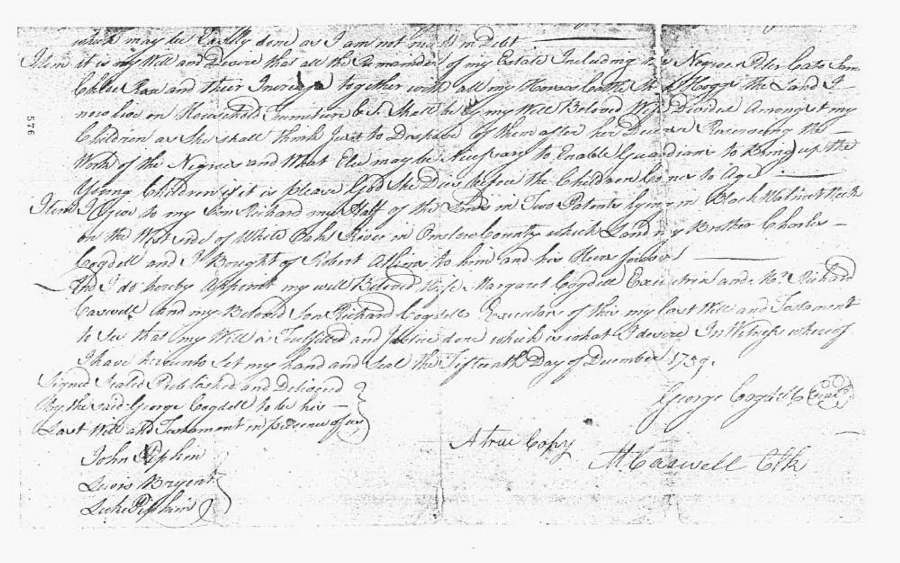 which may be Easily done as I am not much in Debt
Item it is my Will and Desire that all the Remainder of my Estate Including the Negroes Peter Cato Sam
Chloe Ran and their Increase together with all my Horses Cattle Sheep Hoggs the Land I
now live on Household Furniture &c Shall be by my Well Beloved Wife Divided Amongst my
Children as She shall think Just to Dispose of them after her Decease Reserving the
Work of the Negroes and What Else may be Necessary to Enable Guardians to Bring up the
Young Children if it is Please God She Dies before the Children Comes to Age
Item I Give to my Son Richard my Half of the Land in Two Patents lying in Back Walnut
on the West side of White Oak River in Onslow County which Land my Brother Charles
Cogdell and I Bought of Robert to him and his Heirs forever
And I do hereby Appoint my well Beloved Wife Margaret Cogdell Executrix and Richard
Caswell and my Beloved Son Richard Cogdell Executors of this my Last Will and Testament
to See that my Will is Fulfilled and Justice done which is what I desire In Witness whereof
I have hereunto Set my hand and Seal the Fifteenth Day of December 1759.
Signed Sealed Published and
By the said George Cogdell to be his
Last Will and Testament in presence of us
George Cogdell Seal
John Pipkin
Lewis Bryent
Luke Pipkin
A true Copy
M Caswell Clk
576